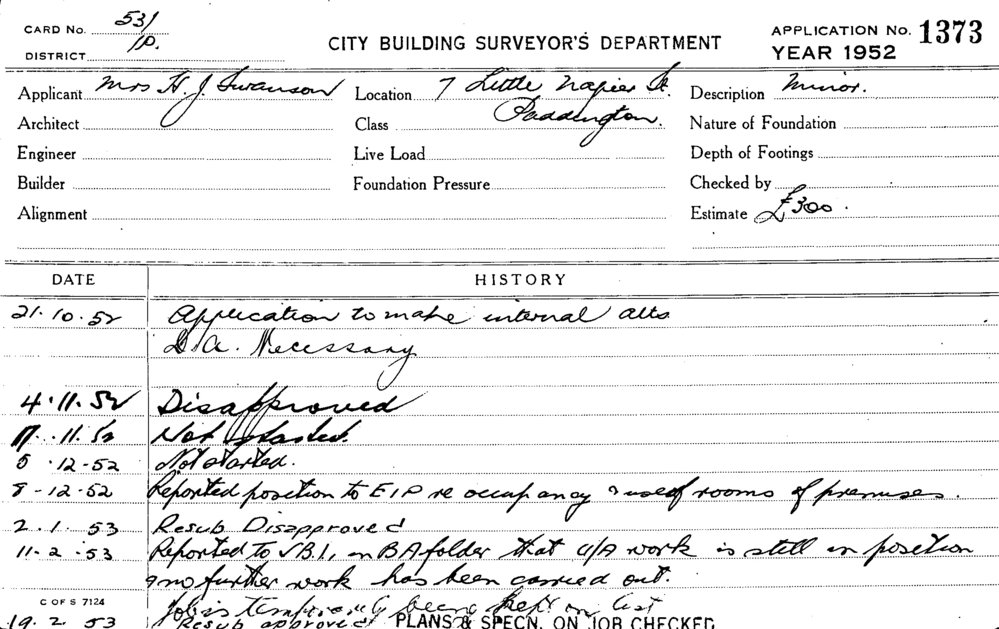 CARD No. 531
DISTRICT. 10.
CITY BUILDING SURVEYOR'S DEPARTMENT
APPLICATION No. 1373
YEAR 1952
Applicant Mrs H. J. Swanson Location 7 Little Napier St. Description Minor.
Architect Class Paddington. Nature of Foundation
Engineer Live Load Depth of Footings
Builder Foundation Pressure Checked by
Alignment Estimate £300.
DATE HISTORY
21.10.52 Application to make internal alts
D.A. Necessary
4.11.52 Disapproved
17.11.52 Not started.
5.12.52 Not started.
8-12-52 Reported position to E.I.P re occupancy & use of rooms of premises.
2.1.53 Resub Disapproved
11-2-53 Reported to in BA folder that u/a work is still in position
& no further work has been carried out.
C OF S 7124 Job is temporarily being kept on list
19.2.53 Resub approved PLANS & SPECN. ON JOB CHECKED